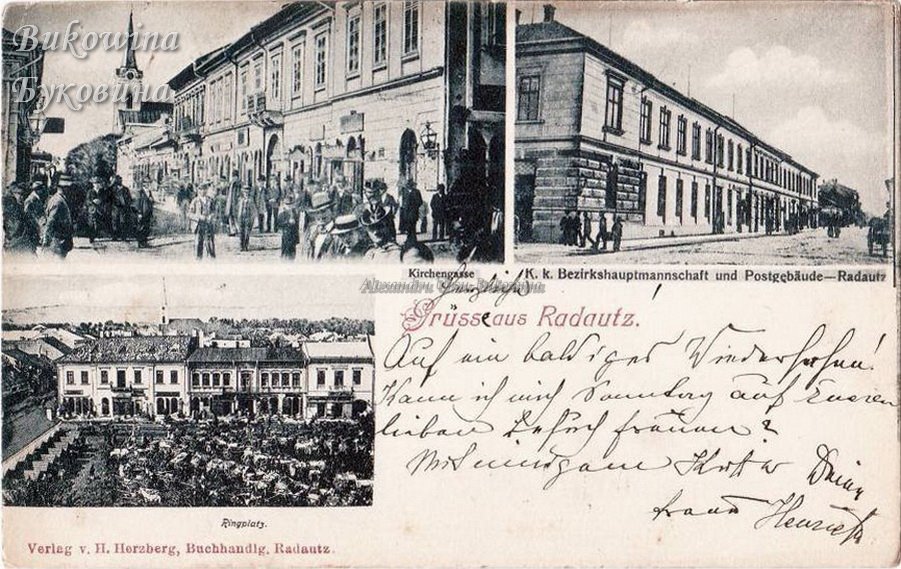 Bukowina
Буковина
Kirchengasse
K. k. Bezirkshauptmannschaft und Postgebäude—Radautz
Alexandru
Grüsse aus Radautz.
!
Auf ein baldiges Wiedersehen!
Kann ich mich Sonntag auf Eueren
lieben Besuch freuen?
Ringplatz.
Verlag v. H. Herzberg, Buchhandlg. Radautz.